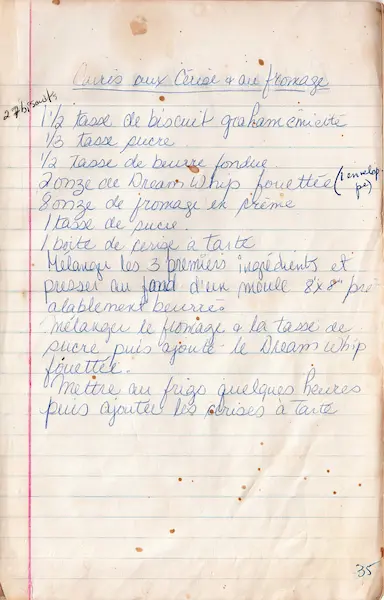 Carrés aux Cerise & au fromage
27 biscuits
1 1/2 tasse de biscuit graham émietté
1/3 tasse sucre
1/2 tasse de beurre fondue
2 onze de Dream Whip fouettée (1 envelop
pe)
8 onze de fromage en crème
1 tasse de sucre.
1 boite de cerise à tarte
Mélanger les 3 premiers ingrédients et
presser au fond d'un moule 8"x8" pré
alablement beurré.
Mélanger le fromage & la tasse de
sucre puis ajouté le Dream Whip
fouettée.
Mettre au frigo quelques heures
puis ajouter les cerises à tarte
35